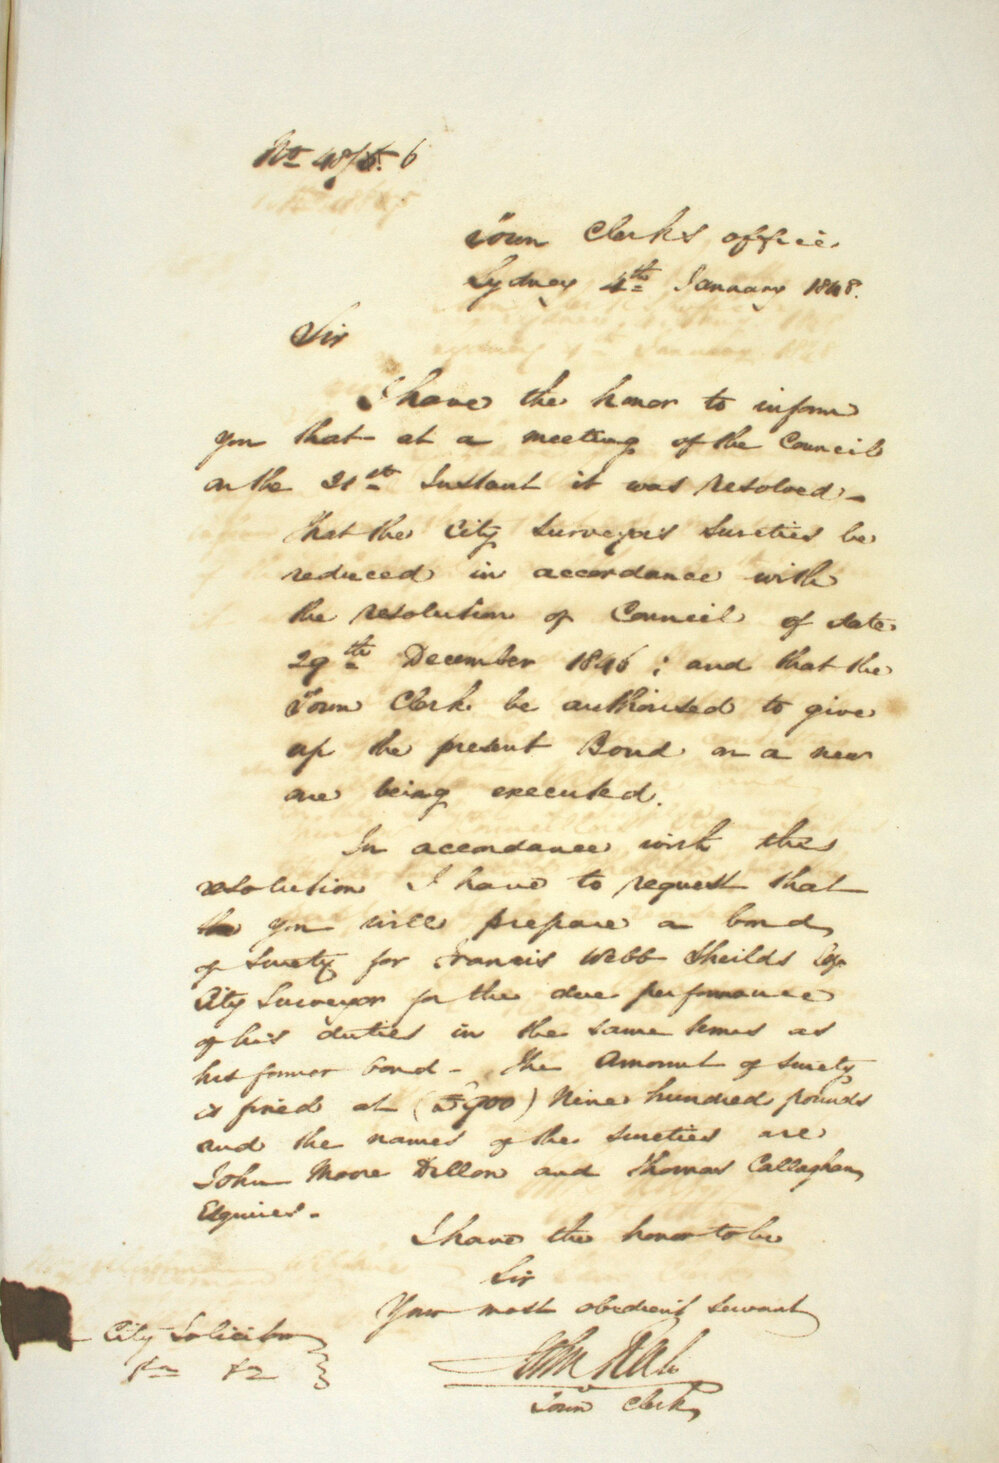 No 48/ 6
Town Clerks office
Sydney 4th January 1848.
Sir
I have the honor to inform
you that at a meeting of the Council
on the 21st Instant it was resolved -
that the City Surveyors Sureties be
reduced in accordance with
the resolution of Council of date
29th December 1846; and that the
Town Clerk be authorised to give
up the present Bond on a new
one being executed.
In accordance with this
resolution I have to request that
you will prepare a bond
of Surety for Francis Webb Sheilds Esqr
City Surveyor for the due performance
of his duties in the same terms as
his former bond - The Amount of surety
is fixed at (£900) Nine hundred pounds
and the names of the sureties are
John Moore Dillon and Thomas Callaghan
Esquires -
I have the honor to be
Sir
Your most obedient Servant
City Solicitor
John Rae
Town Clerk